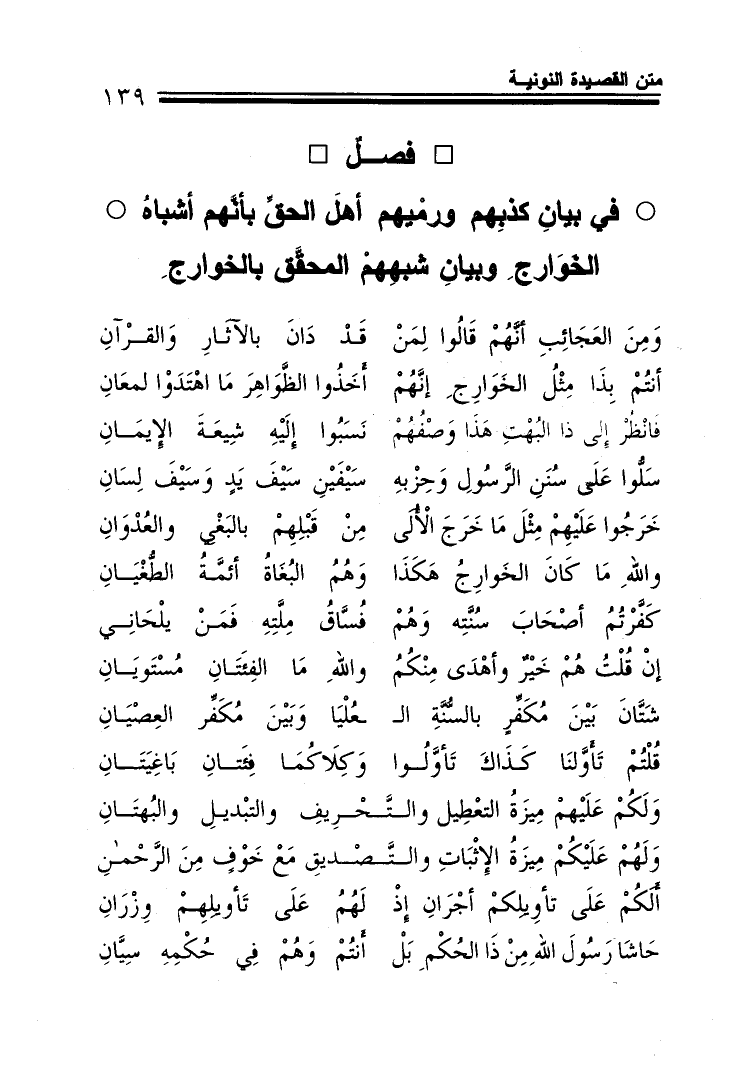 متن القصيدة النونيـة
١٣٩
□ فصـــلٌ □
○ في بيانِ كذبِهم ورمْيِهم أهلَ الحقِّ بأنَّهم أشباهُ ○
الخوَارجِ وبيانِ شبهِهمْ المحقَّق بالخوارجِ
وَمِنَ العَجَائبِ أنَّهُمْ قَالُوا لِمَنْ قَـدْ دَانَ بالآثَـارِ وَالقـرْآنِ
أنتُمْ بِذَا مِثْلُ الخَوَارجِ إنَّهُمْ أخَذُوا الظَّوَاهِرَ مَا اهْتَدَوْا لمعَانِ
فَانْظُرْ إلى ذا البُهْتِ هَذَا وَصْفُهُمْ نَسَبُوا إلَيْهِ شِيعَةَ الإيمَـانِ
سَلُّوا عَلَى سُنَنِ الرَّسُولِ وَحِزْبِهِ سَيْفَيْنِ سَيْفَ يَدٍ وَسَيْفَ لِسَانِ
خَرَجُوا عَلَيْهِمْ مِثْلَ مَا خَرَجَ الْأُلَى مِنْ قَبْلِهِمْ بالبَغْيِ والعُدْوَانِ
واللهِ مَا كَانَ الخَوارِجُ هَكَذَا وَهُمُ البُغَاةُ أئمَّةُ الطُّغْيَـانِ
كَفَّرْتُمُ أصْحَابَ سُنَّتِه وَهُمْ فُسَّاقُ مِلَّتِهِ فَمَـنْ يلْحَانـي
إنْ قُلْتُ هُمْ خَيْرٌ وأهْدَى مِنْكُمُ واللهِ مَا الفِئَتَـانِ مُسْتَويَـانِ
شَتَّانَ بَيْنَ مُكَفِّرٍ بالسُّنَّةِ الـ ـعُلْيَا وَبَيْنَ مُكَفِّر العِصْيَانِ
قُلْتُمْ تَأَوَّلنَا كَـذَاكَ تَأوَّلُـوا وَكِلَاكُمَـا فِئَتـانِ بَاغِيَتَــانِ
وَلَكُمْ عَلَيْهِمْ مِيزَةُ التعْطِيلِ والتَّـحْـريفِ والتبْديلِ والبُهتَانِ
وَلَهُمْ عَلَيْكُمْ مِيزَةُ الإثْبَاتِ والتَّـصْـديقِ مَعْ خَوْفٍ مِنَ الرَّحْمٰنِ
ألَكُمْ عَلَى تأوِيلِكمْ أجْرَانِ إذْ لَهُمُ عَلَى تَأويلِهِـمْ وِزْرَانِ
حَاشَا رَسُولَ اللهِ مِنْ ذَا الحُكْمِ بَلْ أنتُمْ وَهُمْ فِي حُكْمِهِ سِيَّانِ